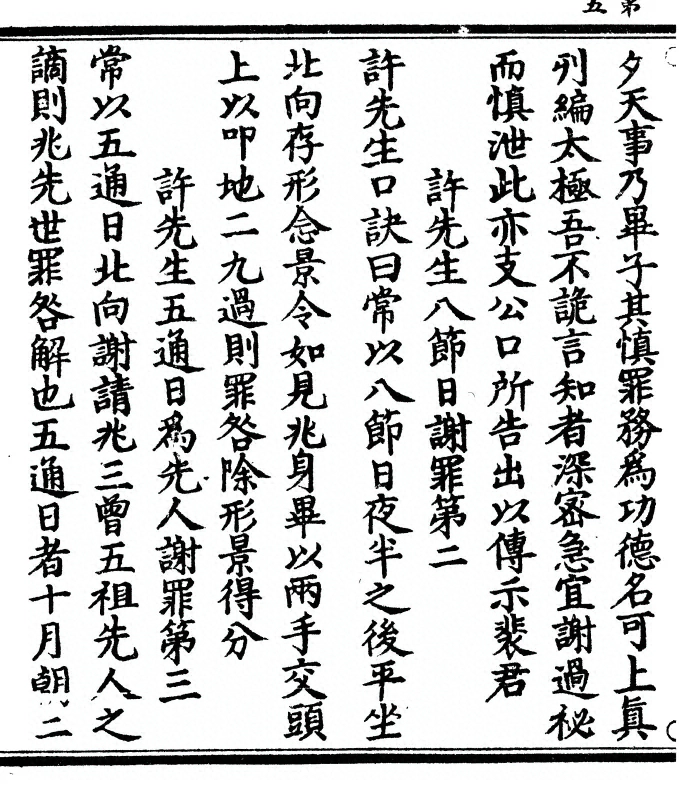 第五
夕天事乃畢子其慎罪務為功德名可上真
刋編太極吾不詭言知者深密急宜謝過祕
而慎泄此亦支公口所告出以傳示裴君
許先生八節日謝罪第二
許先生口訣曰常以八節日夜半之後平坐
北向存形念景令如見兆身畢以兩手交頭
上以叩地二九過則罪咎除形景得分
許先生五通日為先人謝罪第三
常以五通日北向謝請兆三曾五祖先人之
謫則兆先世罪咎解也五通日者十月朝二